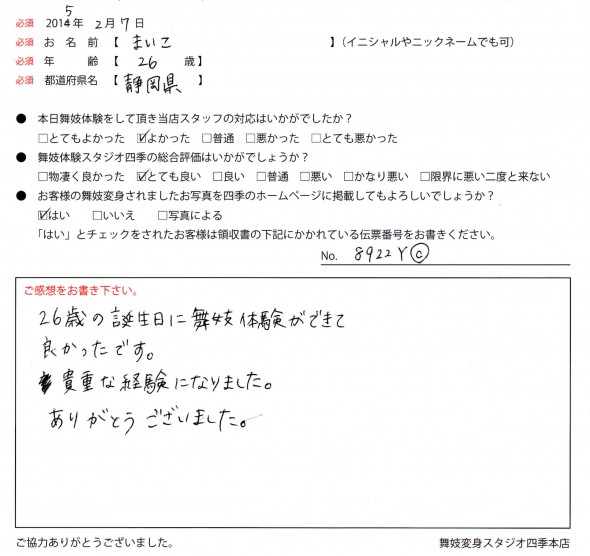 必須 2015年 2月7日
必須 お名前【 まいこ 】(イニシャルやニックネームでも可)
必須 年齢【 26 歳】
必須 都道府県名【 静岡県 】
● 本日舞妓体験をして頂き当店スタッフの対応はいかがでしたか？
□とてもよかった ☑よかった □普通 □悪かった □とても悪かった
● 舞妓体験スタジオ四季の総合評価はいかがでしょうか？
□物凄く良かった ☑とても良い □良い □普通 □悪い □かなり悪い □限界に悪い二度と来ない
● お客様の舞妓変身されましたお写真を四季のホームページに掲載してもよろしいでしょうか？
☑はい □いいえ □写真による
「はい」とチェックをされたお客様は領収書の下記にかかれている伝票番号をお書きください。
No. 8922Yⓒ
ご感想をお書き下さい。
26歳の誕生日に舞妓体験ができて
良かったです。
貴重な経験になりました。
ありがとうございました。
ご協力ありがとうございました。 舞妓変身スタジオ四季本店